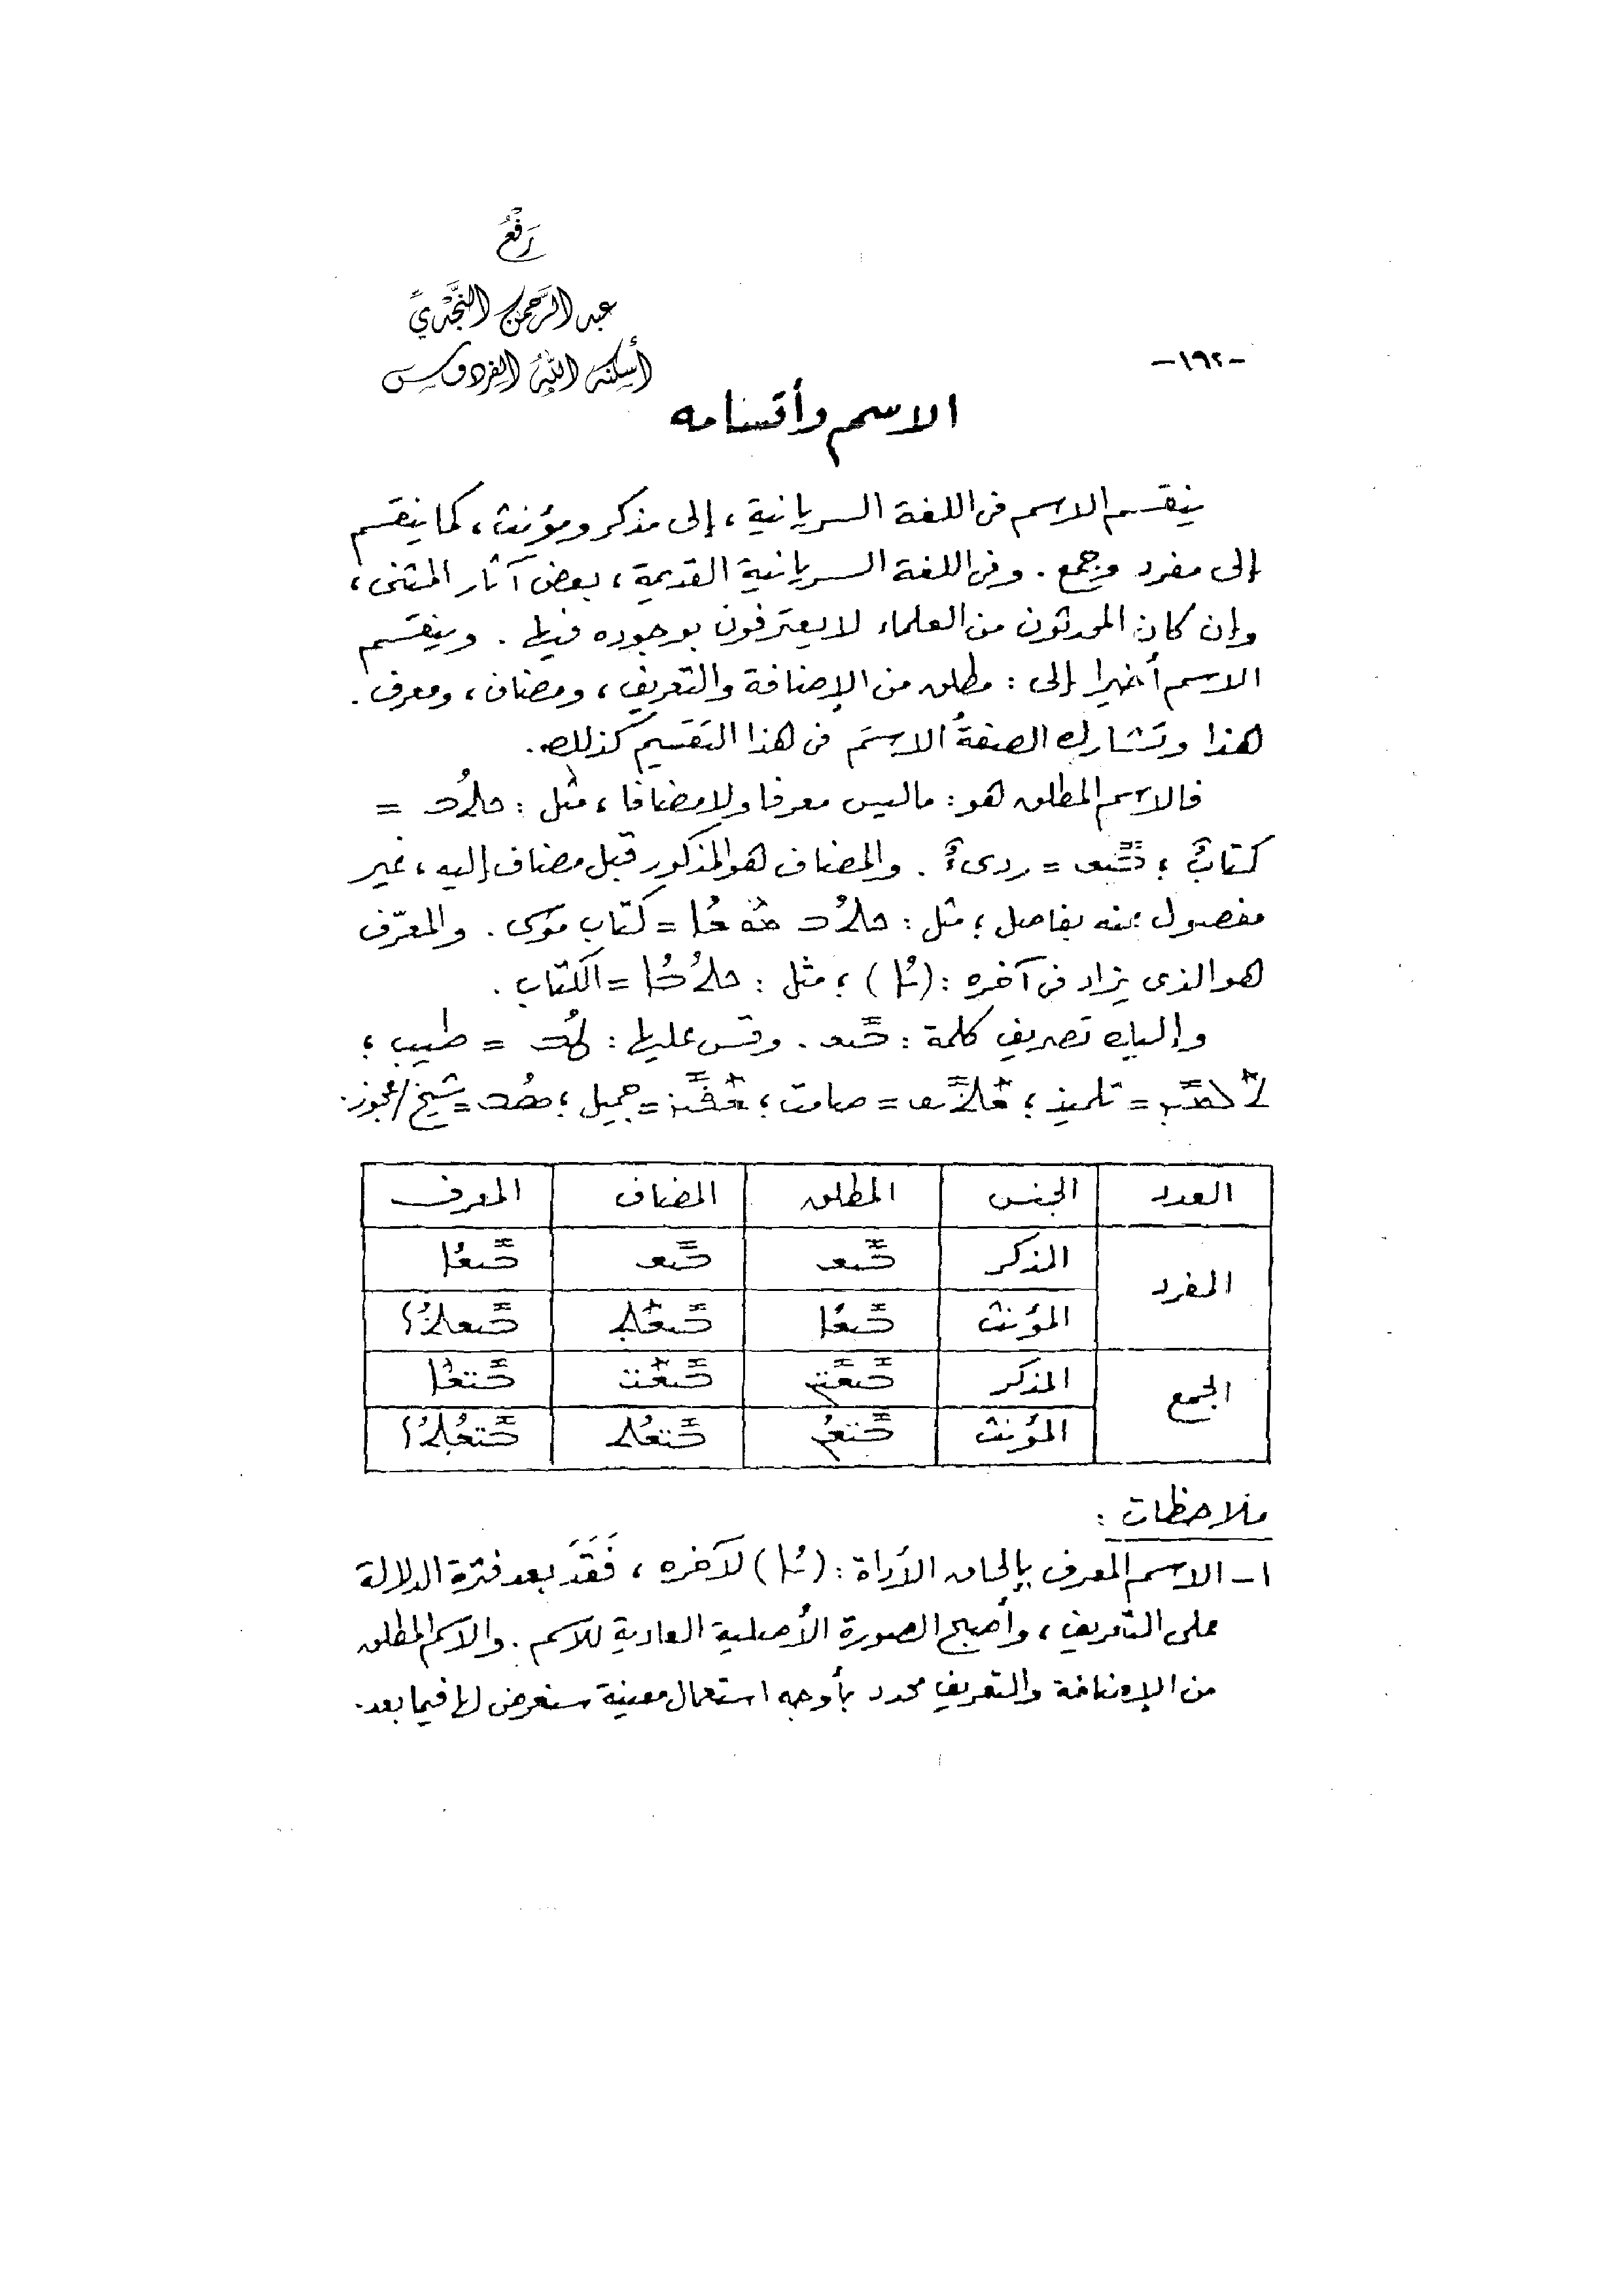 رَفْعُ
عبد الرَّحمن النَّجْديِّ
أسكنه الله الفردوس
-١٩٢-
الاسم وأقسامه
ينقسم الاسم فى اللغة السريانية، إلى مذكر ومؤنث، كما ينقسم
إلى مفرد وجمع. وفى اللغة السريانية القديمة، بعض آثار المثنى،
وإن كان المحدثون من العلماء لا يعترفون بوجوده فيها. وينقسم
الاسم أخيرا إلى: مطلق من الإضافة والتعريف، ومضاف، ومعرف.
هذا وتشارك الصفةُ الاسمَ فى هذا التقسيم كذلك.
فالاسم المطلق هو: ما ليس معرفا ولا مضافا، مثل: ܟܬܳܒ =
كتابٌ؛ ܒܝܫ = ردىءٌ. والمضاف هو المذكور قبل مضاف إليه، غير
مفصول عنه بفاصل؛ مثل: ܟܬܳܒ ܡܘܫܐ = كتاب موسى. والمعرّف
هو الذى يزاد فى آخره: (ـܳܐ)؛ مثل: ܟܬܳܒܳܐ = الكتاب.
وإليك تصريف كلمة: ܒܝܫ. وقس عليها: ܛܳܒ = طيب؛
ܬܠܡܝܕ = تلميذ؛ ܫܬܝܩ = صامت؛ ܫܦܝܪ = جميل؛ ܣܳܒ = شيخ/عجوز.
العدد الجنس المطلق المضاف المعرف
المفرد المذكر ܒܝܫ ܒܝܫ ܒܝܫܳܐ
المؤنث ܒܝܫܳܐ ܒܝܫܰܬ ܒܝܫܬܳܐ
الجمع المذكر ܒܝܫܝܢ ܒܝܫܰܝ ܒܝܫܐ
المؤنث ܒܝܫܳܢ ܒܝܫܳܬ ܒܝܫܳܬܳܐ
ملاحظات:
١- الاسم المعرف بإلحاق الأداة: (ـܳܐ) لآخره، فَقَدَ بعد فترة الدلالة
على التعريف، وأصبح الصورة الأصلية العادية للاسم. والاسم المطلق
من الإضافة والتعريف محدد بأوجه استعمال معينة سنعرض لها فيما بعد.